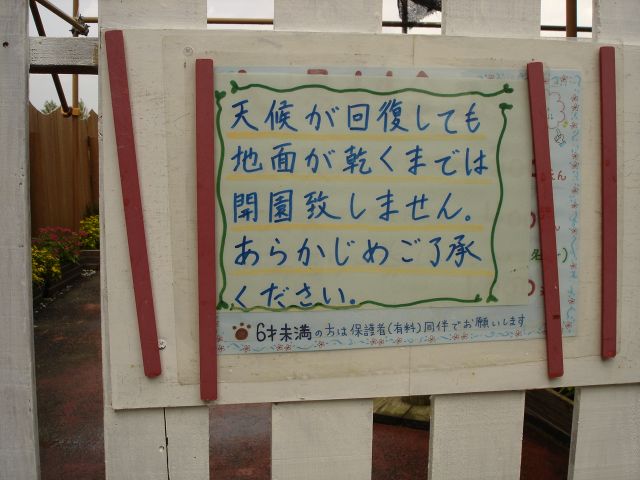 天候が回復しても
地面が乾くまでは
開園致しません。
あらかじめご了承
ください。
6才未満の方は保護者(有料)同伴でお願いします